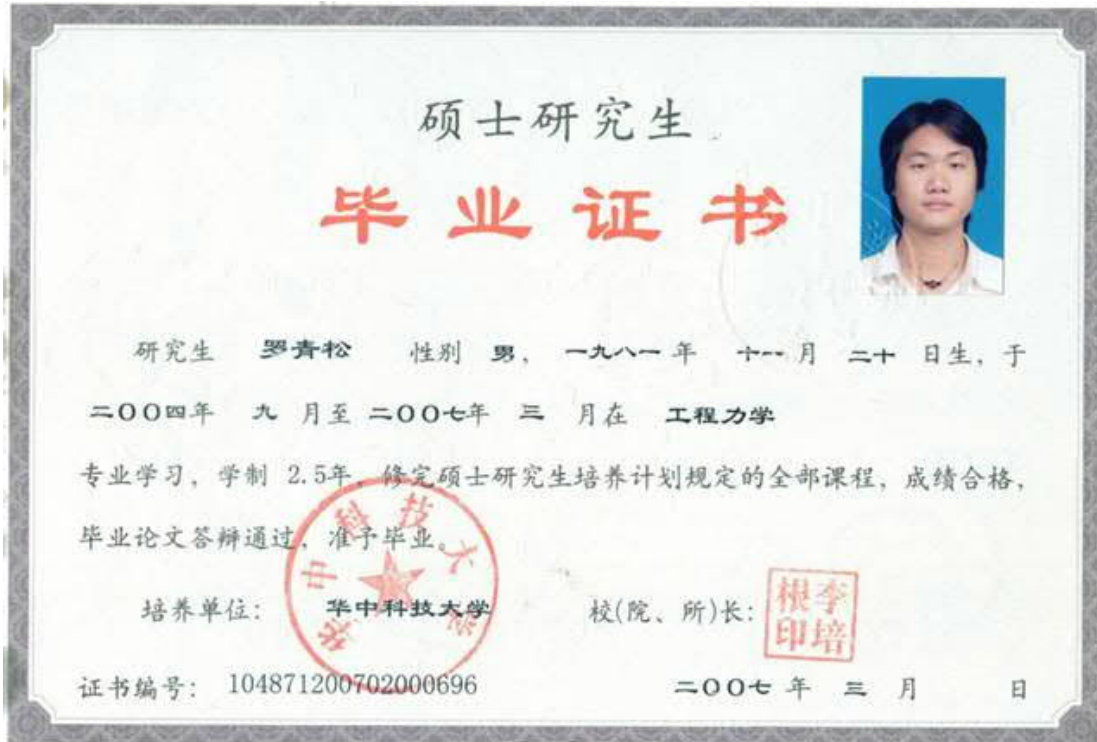 硕士研究生
毕业证书
研究生 罗青松 性别 男, 一九八一 年 十一 月 二十 日生, 于
二〇〇四年 九 月至 二〇〇七年 三 月在 工程力学
专业学习, 学制 2.5年, 修完硕士研究生培养计划规定的全部课程, 成绩合格,
毕业论文答辩通过, 准予毕业。
华中科技大学
培养单位: 华中科技大学 校(院、所)长: 李培根印
证书编号: 104871200702000696 二〇〇七 年 三 月 日